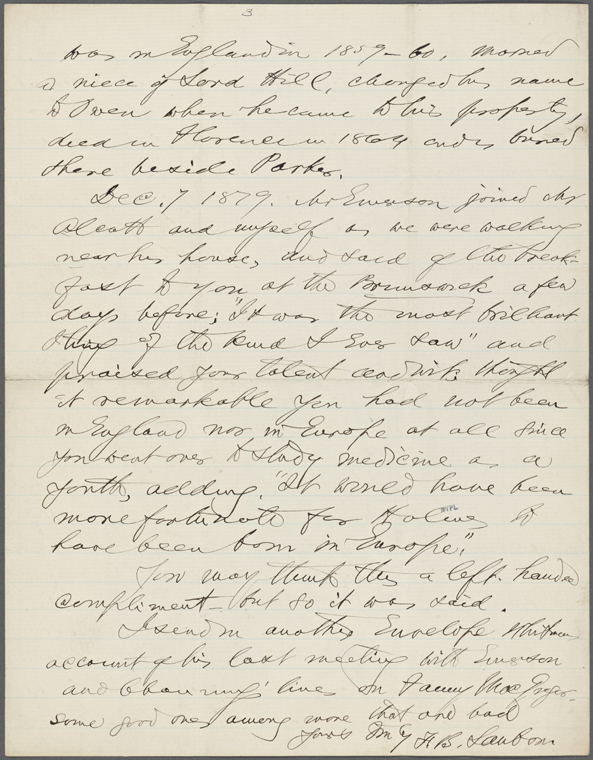 3
was in England in 1859-60, married
a niece of Lord Hill, changed his name
to Owen when he came to his property,
died in Florence in 1864 and is buried
there beside Parker.
Dec. 7 1879. Mr Emerson joined Mr
Alcott and myself as we were walking
near his house, and said of the break-
fast to you at the Brunswick a few
days before; "It was the most brilliant
thing of the kind I Ever saw" and
praised your talent and wit. thought
it remarkable you had not been
in England nor in Europe at all since
you went over to study medicine as a
youth, adding. "It would have been
more fortunate for Holmes to
have been born in Europe".
You may think this a left-handed
compliment - but so it was said.
I send in another Envelope Whitman's
account of his last meeting with Emerson
and Channing's lines on Fanny MacGregor-
some good ones among more that are bad
Yours truly F. B. Sanborn